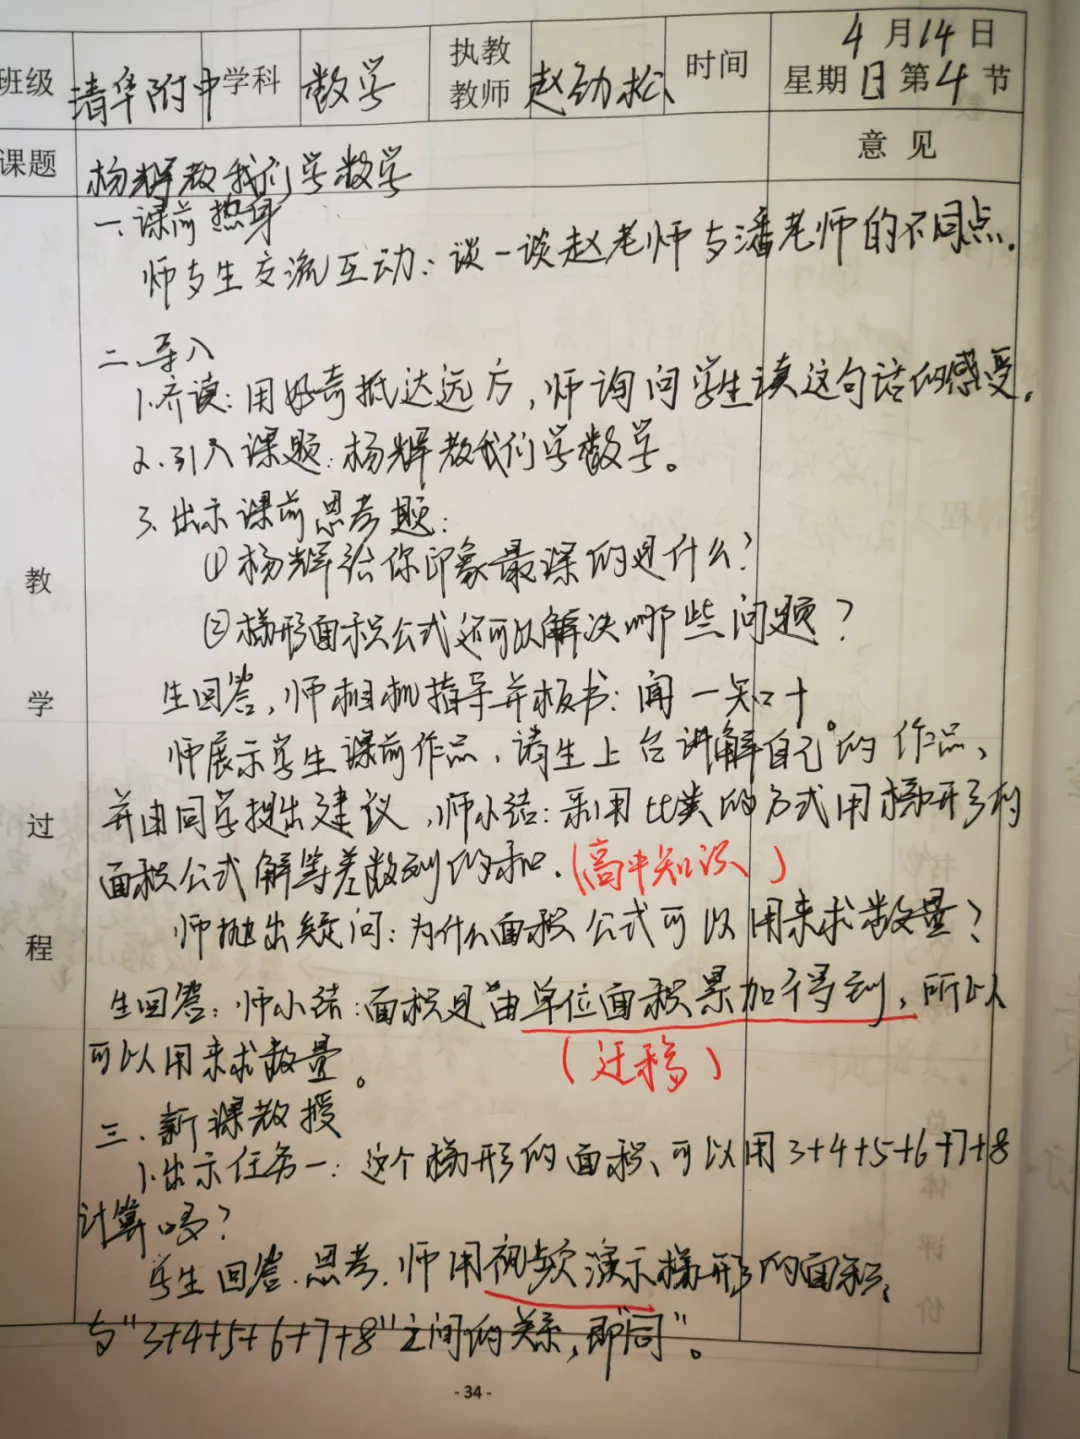 班级 清华附中 学科 数学 执教教师 赵劲松 时间 4月14日 星期日第4节
课题 杨辉教我们学数学 意见
教学过程
一、课前热身
师与生交流互动：谈一谈赵老师与潘老师的不同点.
二、导入
1.齐读：用好奇抵达远方，师询问学生读这句话的感受.
2.引入课题：杨辉教我们学数学。
3.出示课前思考题：
①杨辉给你印象最深的是什么？
②梯形面积公式还可以解决哪些问题？
生回答，师相机指导并板书：闻一知十
师展示学生课前作品，请生上台讲解自己的作品、
并由同学提出建议，师小结：采用比类的方式用梯形的
面积公式解等差数列的和.（高中知识）
师抛出疑问：为什么面积公式可以用来求数量？
生回答；师小结：面积是由单位面积累加得到，所以
（迁移）
可以用来求数量。
三、新课教授
1.出示任务一：这个梯形的面积、可以用3+4+5+6+7+8
计算吗？
学生回答.思考.师用视频演示梯形的面积、
与"3+4+5+6+7+8"之间的关系，即"同"。
总体评价
- 34 -